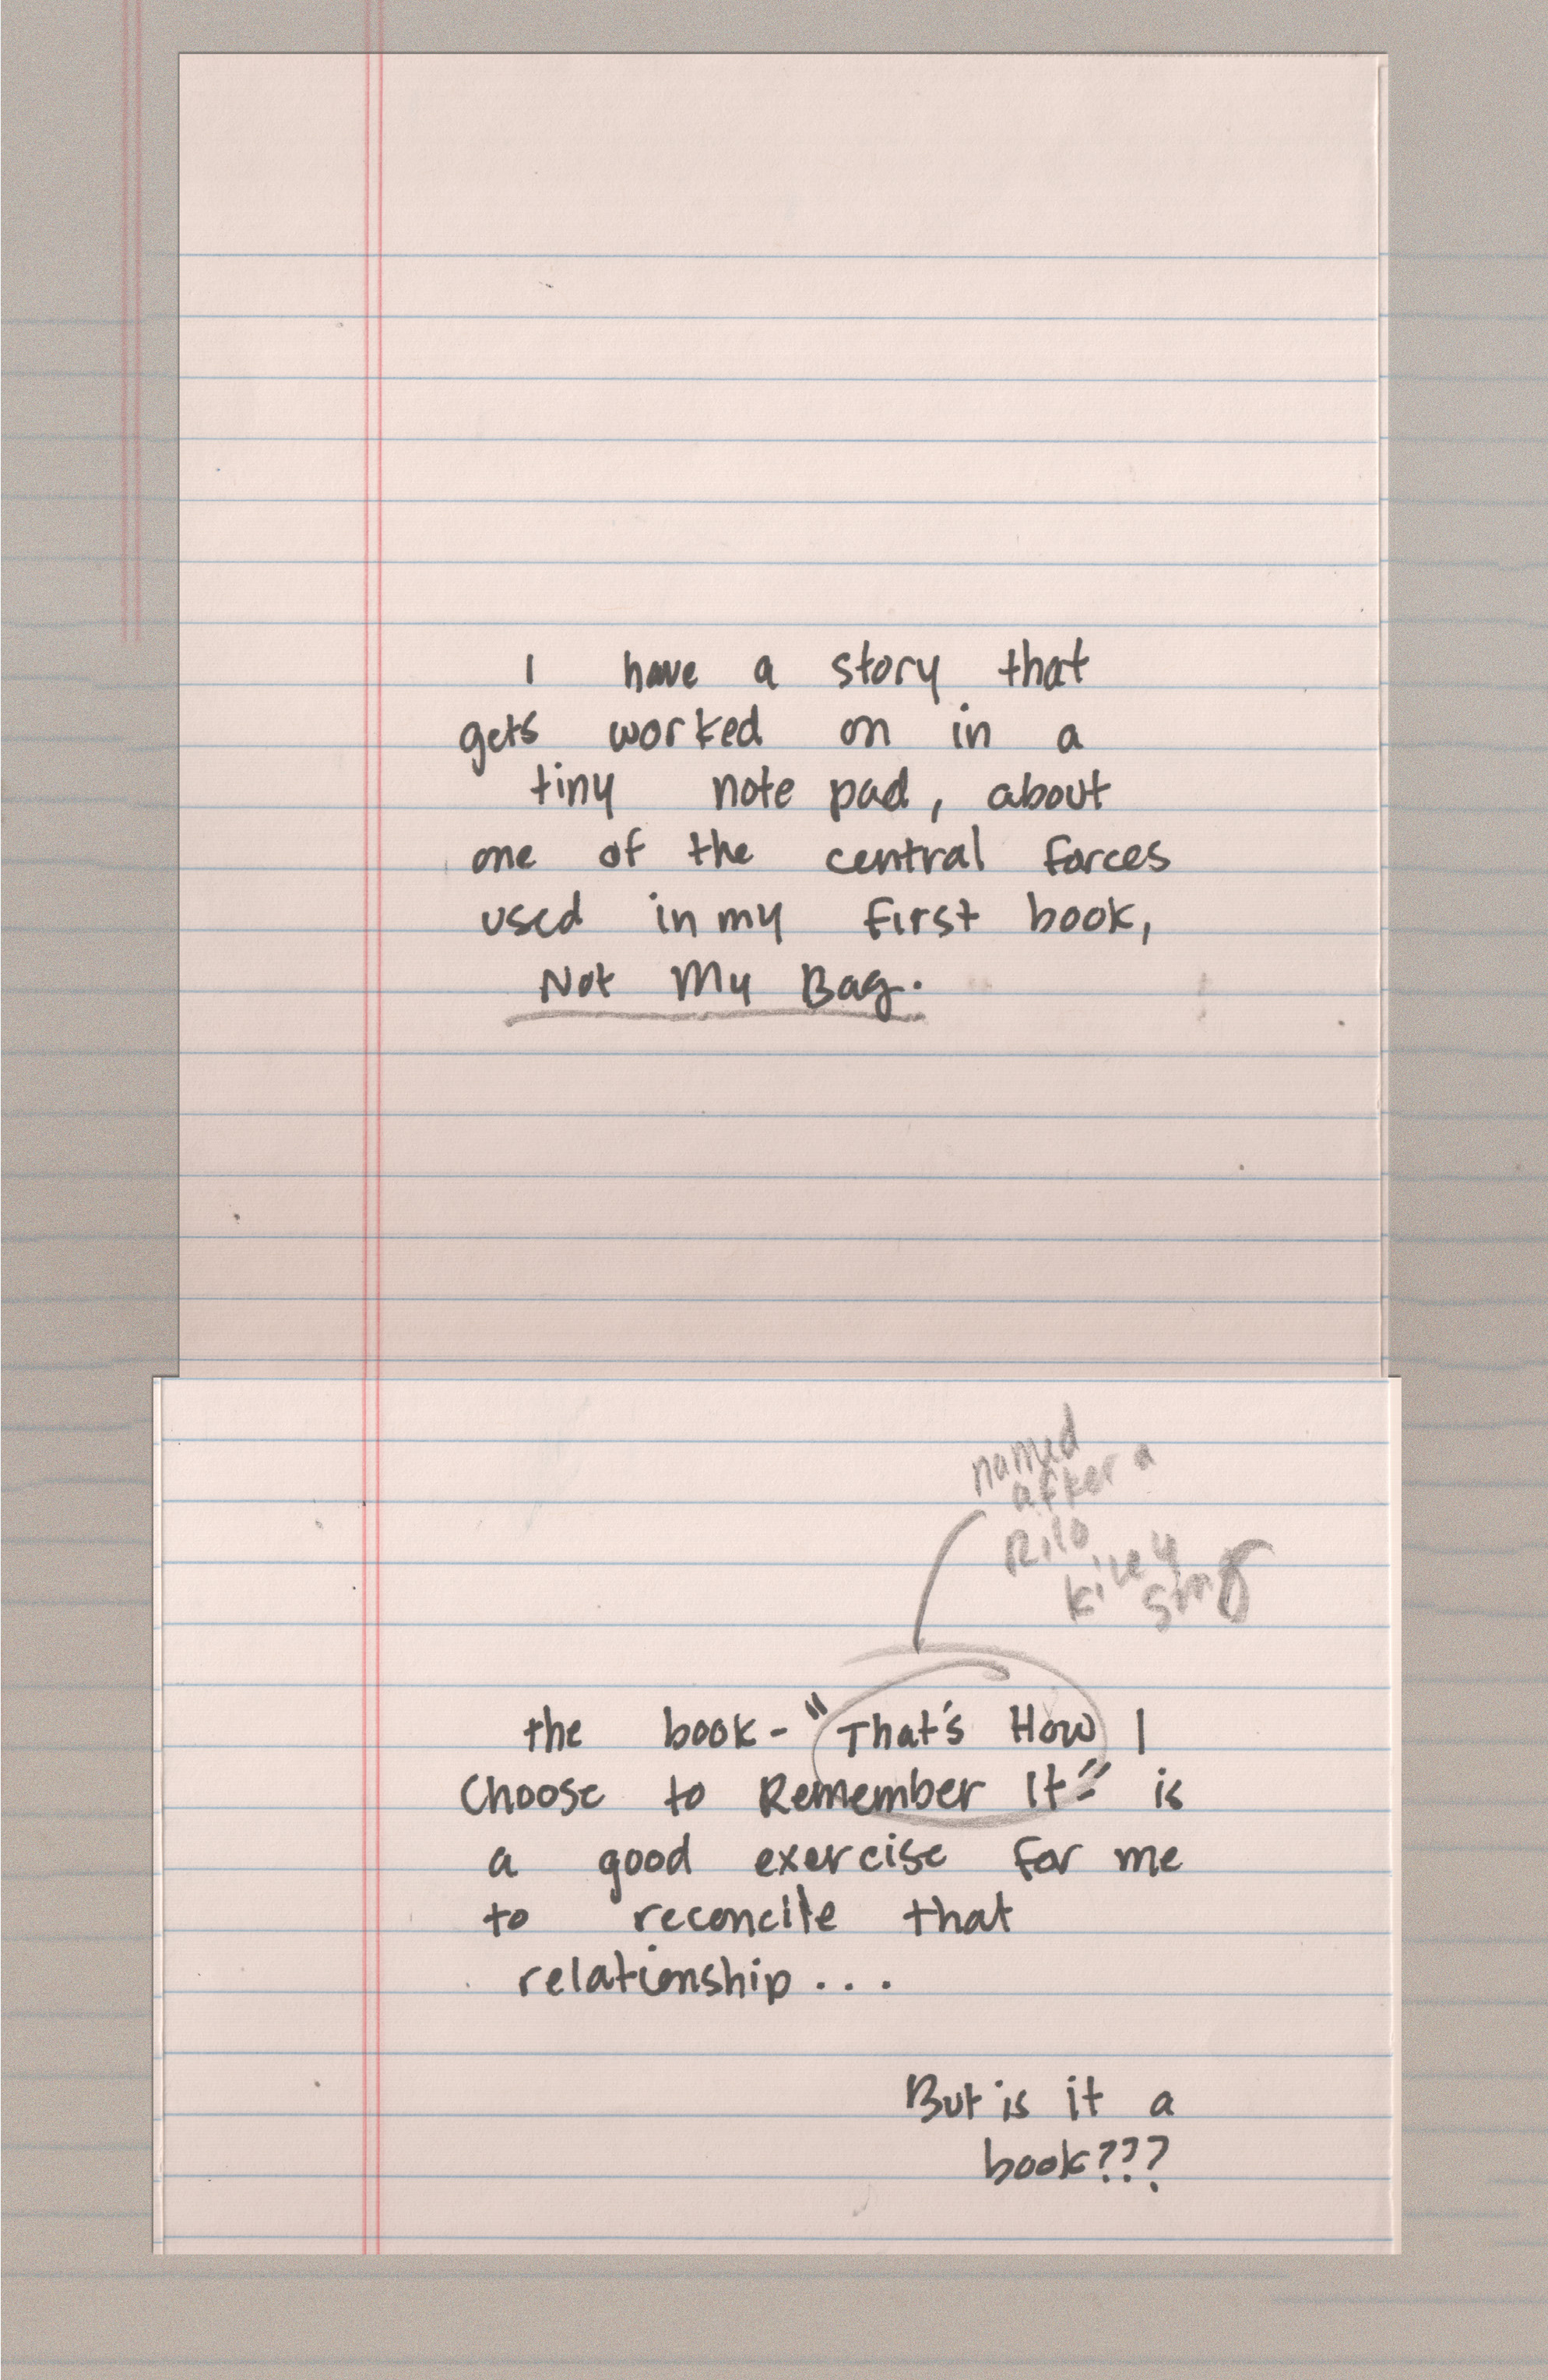 I have a story that
gets worked on in a
tiny note pad, about
one of the central forces
used in my first book,
Not My Bag.
named
after a
Rilo
kiley
song
the book - "That's How I
Choose to Remember It" is
a good exercise for me
to reconcile that
relationship...
But is it a
book???